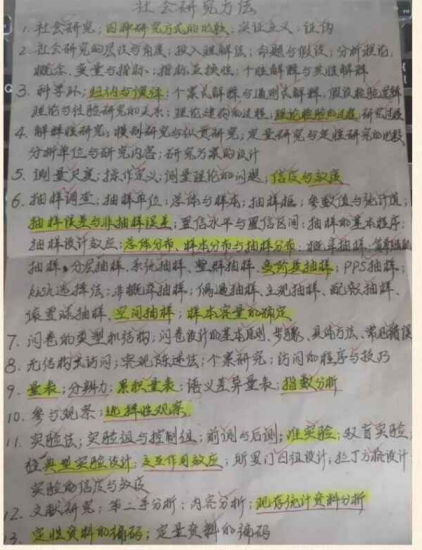 社会研究方法
1. 社会研究;四种研究方式的比较;实证主义;证伪
2. 社会研究的层次与角度;投入理解法;命题与假设;分析理论,
概念、变量与指标;指标互换性;个性解释与共性解释
3. 科学环;归纳与演绎;个案式解释与通则式解释,假设检验逻辑
理论与经验研究的关系;理论建构的过程;理论检验的过程;研究过程
4. 解释性研究;横剖研究与纵贯研究;定量研究与定性研究的比较
分析单位与研究内容;研究方案的设计
5. 测量尺度;操作定义;测量理论的问题;信度与效度
6. 抽样调查;抽样单位;总体与样本;抽样框;参数值与统计值;
抽样误差与非抽样误差;置信水平与置信区间;抽样的基本程序;
抽样设计效应;总体分布、样本分布与抽样分布;概率抽样、简单随机
抽样、分层抽样、系统抽样、整群抽样、多阶段抽样;PPS抽样;
户内选择法;非概率抽样;偶遇抽样、主观抽样、配额抽样、
滚雪球抽样、空间抽样;样本容量的确定
7. 问卷的类型和结构;问卷设计的基本原则、步骤、具体方法、常见错误
8. 无结构式访问;客观陈述法;个案研究;访问的程序与技巧
9. 量表;分辨力;累积量表;语义差异量表;指数分析
10. 参与观察;选择性观察
11. 实验法;实验组与控制组;前测与后测;准实验;双盲实验
典型实验设计;交互作用效应;所罗门四组设计;拉丁方格设计
实验的信度与效度
12. 文献研究;第二手分析;内容分析;现存统计资料分析
13. 定性资料的编码;定量资料的编码